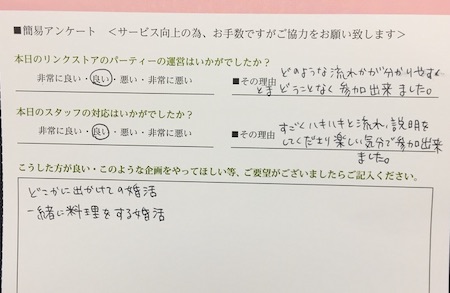 ■簡易アンケート ＜サービス向上の為、お手数ですがご協力をお願い致します＞
本日のリンクストアのパーティーの運営はいかがでしたか？
非常に良い・良い・悪い・非常に悪い
■その理由
どのような流れかが分かりやすく
とまどうことなく参加出来ました。
本日のスタッフの対応はいかがでしたか？
非常に良い・良い・悪い・非常に悪い
■その理由
すごくハキハキと流れ、説明を
してくださり楽しい気分で参加出来
ました。
こうした方が良い・このような企画をやってほしい等、ご要望がございましたらご記入ください。
どこかに出かけての婚活
一緒に料理をする婚活